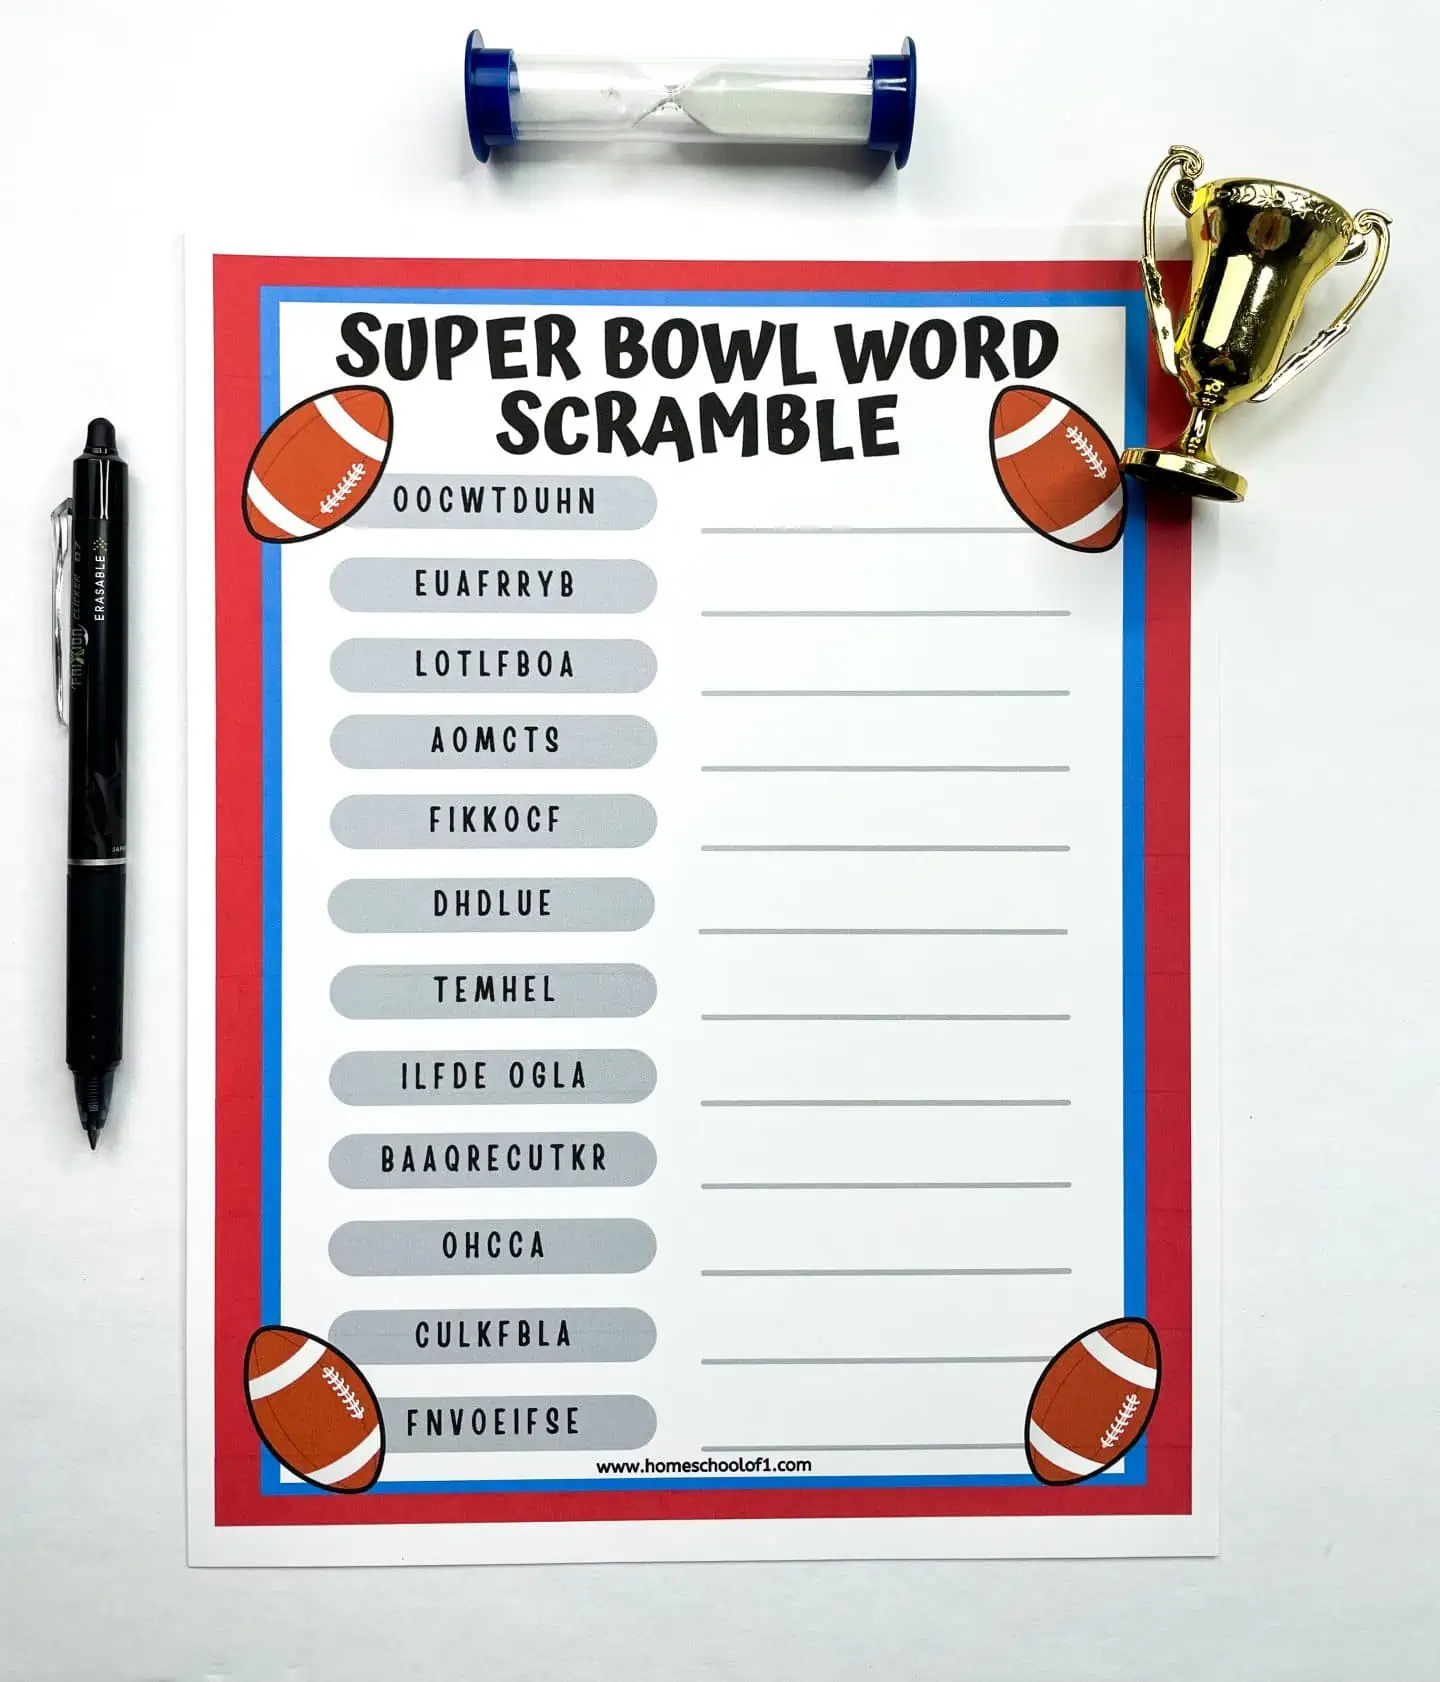 SUPER BOWL WORD
SCRAMBLE
OOCWTDUHN
EUAFRRYB
LOTLFBOA
AOMCTS
FIKKOCF
DHDLUE
TEMHEL
ILFDE OGLA
BAAQRECUTKR
OHCCA
CULKFBLA
FNVOEIFSE
www.homeschoolof1.com
ERASABLE
FRIXION CLICKER 07